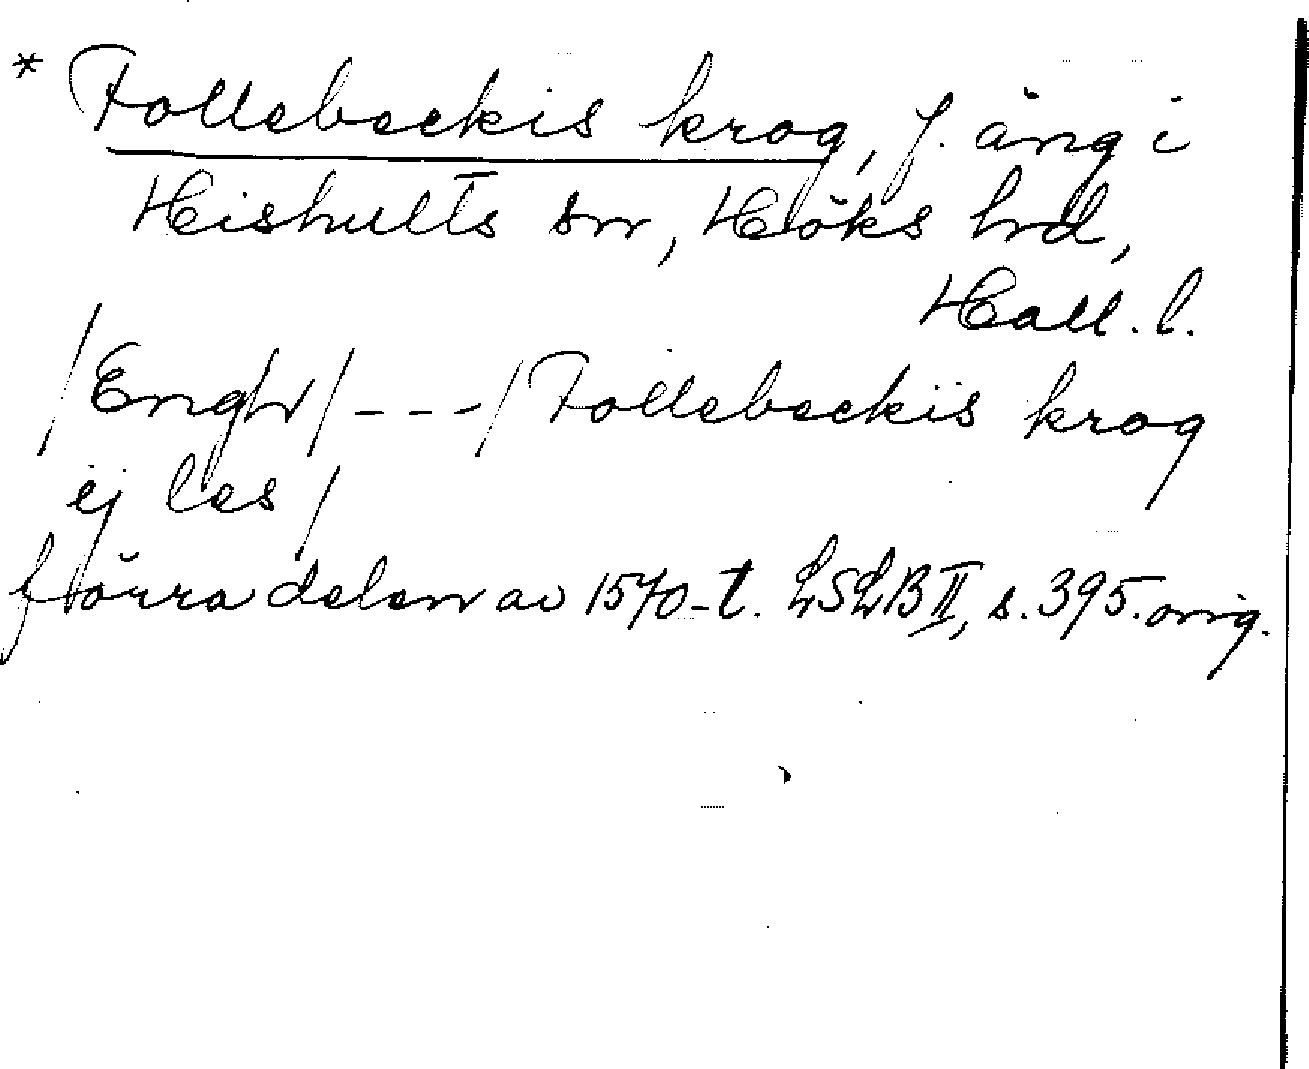 * Follebeckis krog, f. äng i
Hishults sn, Höks hd,
Hall. l.
/Engh/ --- / Follebeckiis krog
ej les /
förra delen av 1570-t. LSLB II, s. 395. orig.